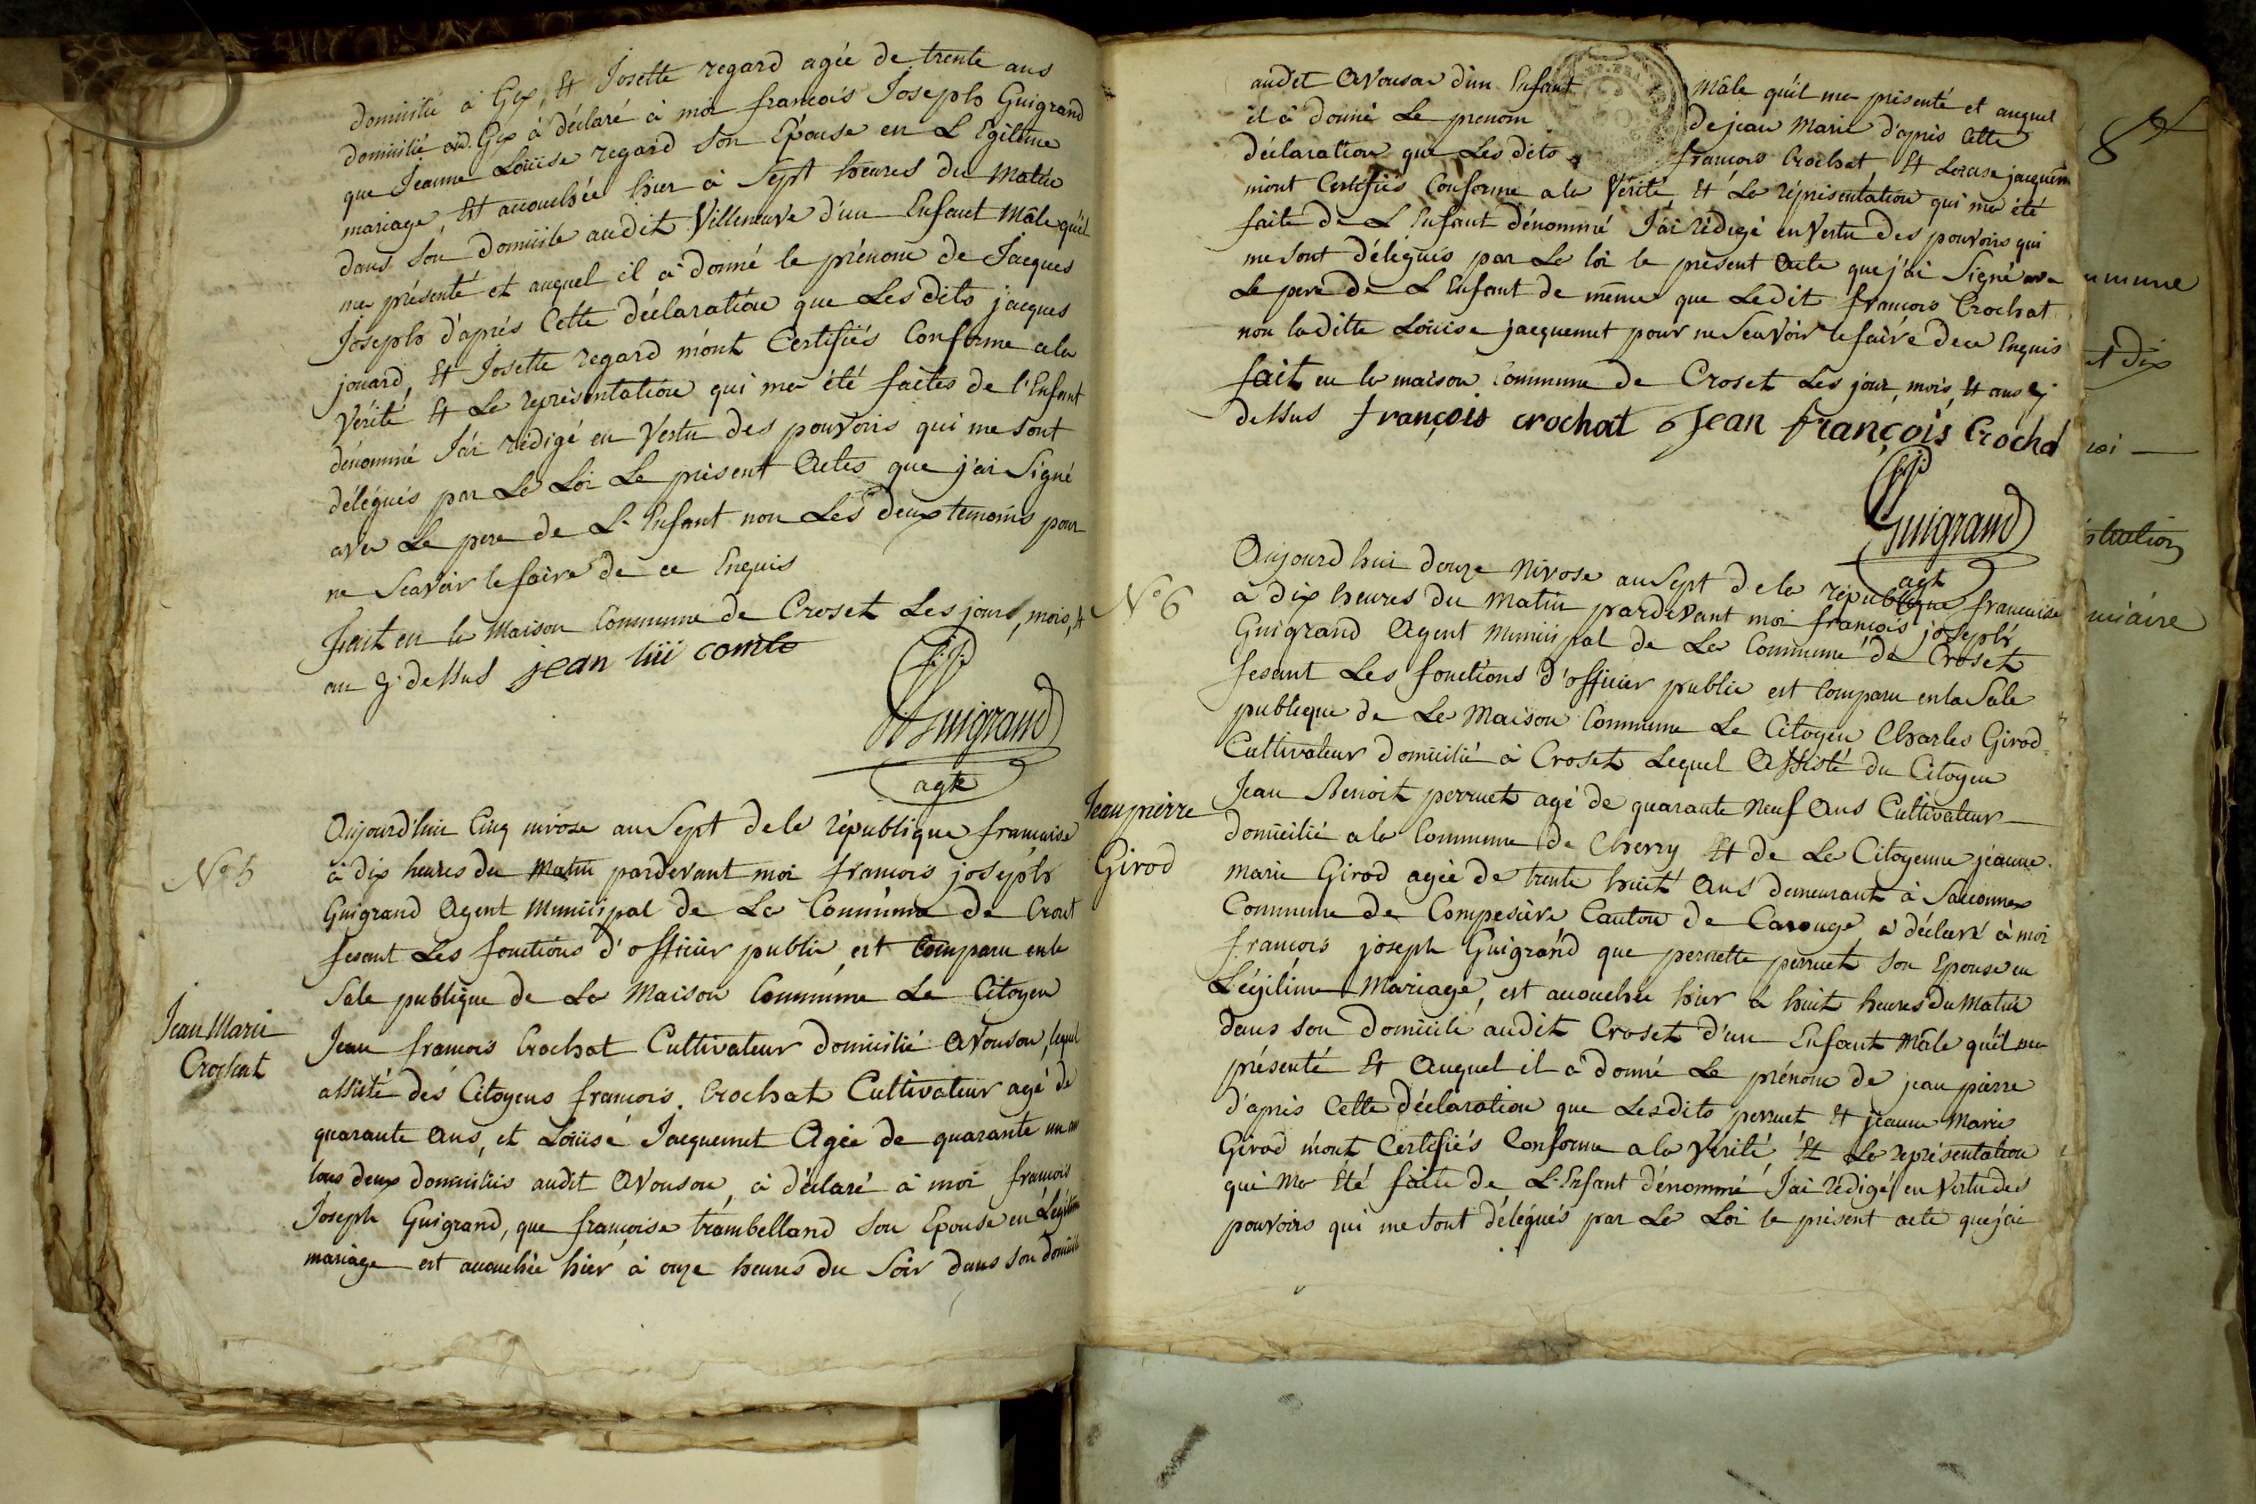 domicilié à Gex, Et Josette regard agée de trente ans
domicilié aud. Gex à déclaré à moi francois Joseph Guigrand
que Jeanne Loüise regard Son Epouse en L Egitime
mariage, Est accouchée hier à Sept heures du Matin
dans Son domicile audit Villeneuve d'un Enfant Mâle qu'il
ma présenté et auquel il à donné le prénom de Jacques
Joseph d'aprés Cette déclaration que Les dits jacques
jouard, Et Josette regard m'ont Certifiés Conforme ala
Vérité Et La représentation qui ma été faites de l'Enfant
dénommé J'ai rédigé en Vertu des pouvoirs qui me Sont
délégués par La Loi Le présent Actes que j'ai Signé
avec Le pere de L'Enfant non Les deux temoins pour
ne Scavoir le faire de ce Enquis
Fait en la Maison Commune de Croset Les jours, mois, Et
an cy dessus jean lui comte
Guigrand
agt
Aujourd'hui Cinq nivose an Sept de la république francaise
N° 5
à dix heures du Matin pardevant moi francois joseph
Guigrand Agent Municipal de La Commune de Croset
fesant Les fonctions d'officier public, est Comparu en la
Sale publique de La Maison Commune Le Citoyen
Jean Marie
Crochat
Jean francois Crochat Cultivateur domicilié Avouson, lequel
assisté des Citoyens francois Crochat Cultivateur agé de
quarante Ans, et Loüise Jacquemet Agée de quarante un ans
tous deux domiciliés audit Avouson, à déclaré à moi francois
Joseph Guigrand, que françoise trambelland Son Epouse en Légitime
mariage est accouchée hier à onze heures du Soir dans Son domicile
audit Avouson d'un Enfant Mâle qu'il ma présenté et auquel
il à donné Le prenom de jean Marie d'aprés Cette
déclaration que Les dits francois Crochat Et Louise jacquemet
m'ont Certifiés Conforme a la Vérité, Et La représentation qui ma été
faite de L'Enfant dénommé J'ai rédigé en Vertu des pouvoirs qui
me Sont délégués par La loi le présent Acte que j'ai Signé avec
Le pere de L'Enfant de même que Ledit françois Crochat
non ladite Loüise jacquemet pour ne Scavoir le faire de ce Enquis
fait en la maison Commune de Croset Les jour, mois, Et ans cy
dessus françois crochat Jean françois Crochat
Guigrand
agt
N° 6
Aujourdhui douze Nivose an Sept de la république francaise
à dix heures du Matin pardevant moi françois joseph
Guigrand Agent Municipal de La Commune de Croset
fesant Les fonctions d'officier public est Comparu en la Sale
publique de La Maison Commune Le Citoyen Charles Girod
Cultivateur domicilié à Croset Lequel Assisté du Citoyen
Jean pierre
Girod
Jean Benoit perruet agé de quarante Neuf Ans Cultivateur
domicilié a la Commune de Chevry Et de La Citoyenne jeanne
marie Girod agée de trente huit Ans demeurant à Saconnex
Commune de Compesière Canton de Carouge a déclaré à moi
francois joseph Guigrand que pernette perruet Son Epouse en
Légitime Mariage, est accouchée hier à huit heures du Matin
dans Son Domicile audit Croset d'un Enfant Mâle qu'il ma
présenté Et Auquel il à donné Le prénom de jean pierre
d'aprés Cette Déclaration que Lesdits perruet Et jeanne Marie
Girod m'ont Certifiés Conforme a la Verité, Et La représentation
qui Ma Eté faite de L'Enfant dénommé, J'ai rédigé en Vertu des
pouvoirs qui me Sont délégués par La Loi le présent acte que j'ai